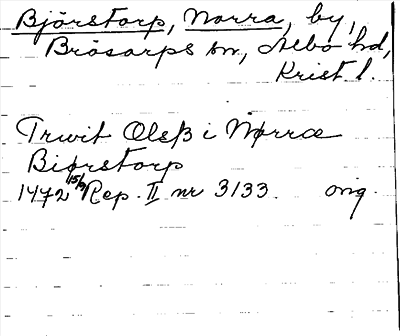 Björstorp, Norra, by,
Brösarps sn, Albo hd,
Krist. l.
Truit Olsß i Nørræ
Biørstorp
1472 15/9 Rep. II nr 3133. orig.